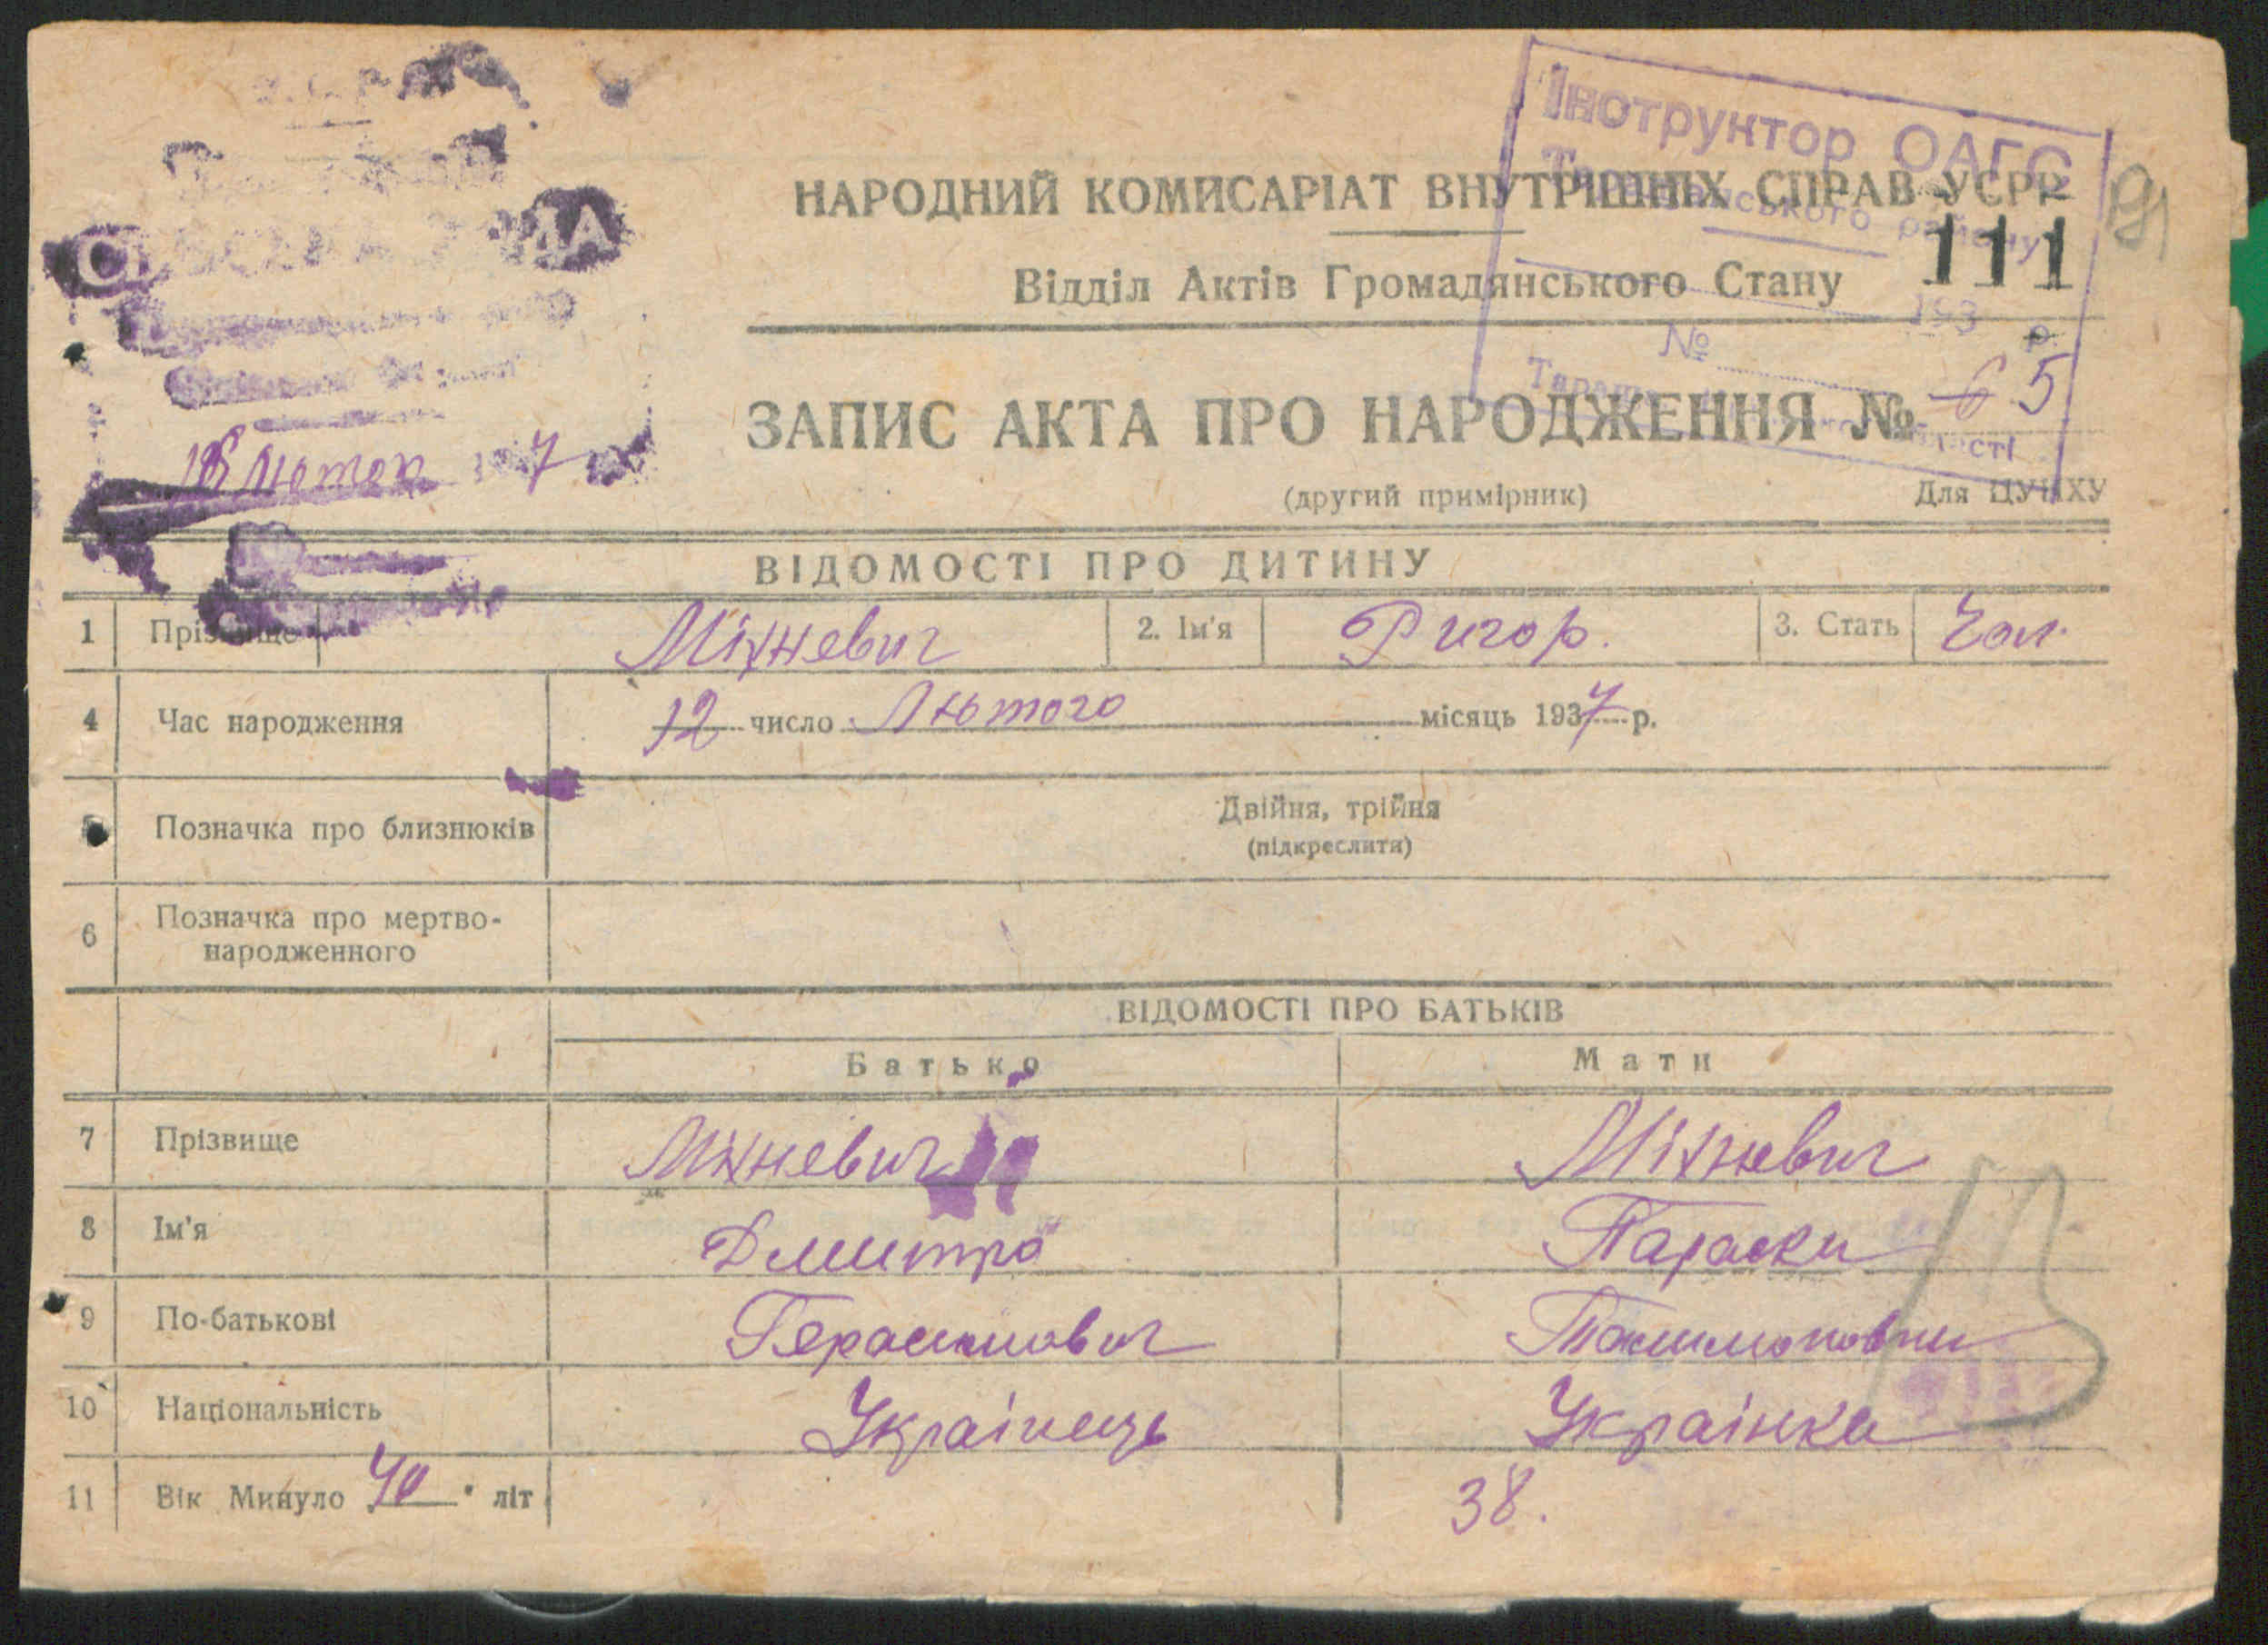 Інструктор ОАГС
НАРОДНИЙ КОМИСАРІАТ ВНУТРІШНІХ СПРАВ УСРР
району
111
Відділ Актів Громадянського Стану
193 р.
№
ЗАПИС АКТА ПРО НАРОДЖЕННЯ № 6 5
18 лютого 1937
(другий примірник) Для ЦУНХУ
ВІДОМОСТІ ПРО ДИТИНУ
1 Прізвище Міхневич 2. Ім'я Ригор. 3. Стать Чол.
4 Час народження 12 число Лютого місяць 1937 р.
5 Позначка про близнюків Двійня, трійня
(підкреслити)
6 Позначка про мертво-
народженного
ВІДОМОСТІ ПРО БАТЬКІВ
Батько Мати
7 Прізвище Міхневич Міхневич
8 Ім'я Дмитро Параски
9 По-батькові Герасимович
10 Національність Українець Українка
11 Вік Минуло 40 літ 38.